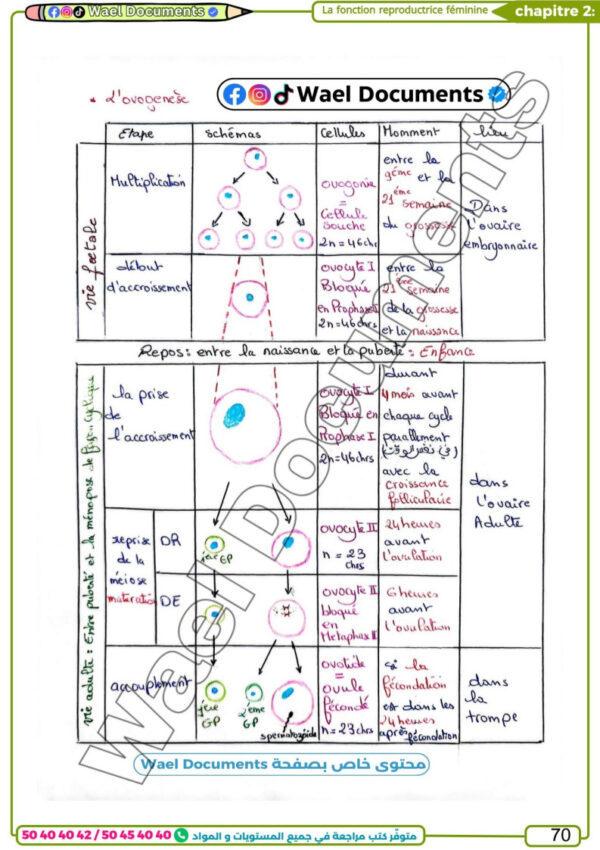 Wael Documents
La fonction reproductrice féminine
chapitre 2:
Wael Documents
* L'ovogenèse
Etape
Schémas
Cellules
Momment
lieu
vie fœtale
Multiplication
ovogonie
=
Cellule
souche
2n = 46chr
entre la
9éme et la
21éme semaine
du grossesse
Dans
l'ovaire
embryonnaire
début
d'accroissement
ovocyte I
Bloqué
en Prophase I
2n = 46chrs
entre la
21éme semaine
de la grossesse
et la naissance
Repos: entre la naissance et la puberté: Enfance
vie adulte: Entre puberté et la ménopose de façon cyclique
la prise
de
l'accroissement
ovocyte I
Bloqué en
Prophase I
2n=46chrs
durant
4 mois avant
chaque cycle
parallement
(في نفس الوقت)
avec la
croissance
folliculaire
dans
l'ovaire
Adulte
reprise
de la
méiose
maturation
DR
1ère GP
ovocyte II
n = 23
chrs
24 heures
avant
l'ovulation
DE
ovocyte II
bloqué
en
Metaphase II
6 heures
avant
l'ovulation
accouplement
1ère
GP
2ème
GP
spermatozoïde
ovotide
=
ovule
fécondé
n=23chrs
si la
fécondation
est dans les
24 heures
après fécondation
dans
la
trompe
Wael Documents
محتوى خاص بصفحة Wael Documents
50 40 40 42 / 50 45 40 40 متوفّر كتب مراجعة في جميع المستويات و المواد
70